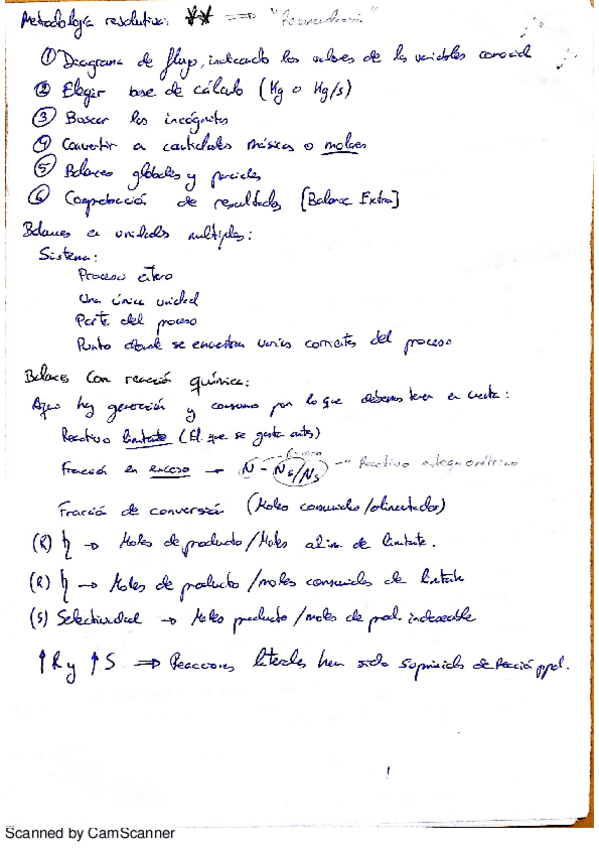 Metodología resolutiva: ** ⟹ " "
① Diagrama de flujo, indicando los valores de las variables conocid
② Elegir base de cálculo (Kg o Kg/s)
③ Buscar las incógnitas
④ Convertir a cantidades másicas o molares
⑤ Balances globales y parciales
⑥ Comprobación de resultados [Balance Extra]
Balances en unidades múltiples:
Sistema:
Proceso entero
Una única unidad
Parte del proceso
Punto donde se encuentran varias corrientes del proceso
Balances con reacción química:
Aquí hay generación y consumo por lo que debemos tener en cuenta:
Reactivo limitante (El que se gasta antes)
Fracción en exceso → N - Ns/Ns -- Reactivo estequiométrico
Fracción de conversión (Moles consumidos/alimentados)
(R) η → Moles de producto/Moles alim. de limitante.
(R) η → Moles de producto/moles consumidos de limitante
(S) Selectividad → Moles producto/moles de prod. indeseable
↑R y ↑S ⟹ Reacciones laterales han sido suprimidas de reacción ppal.
Scanned by CamScanner